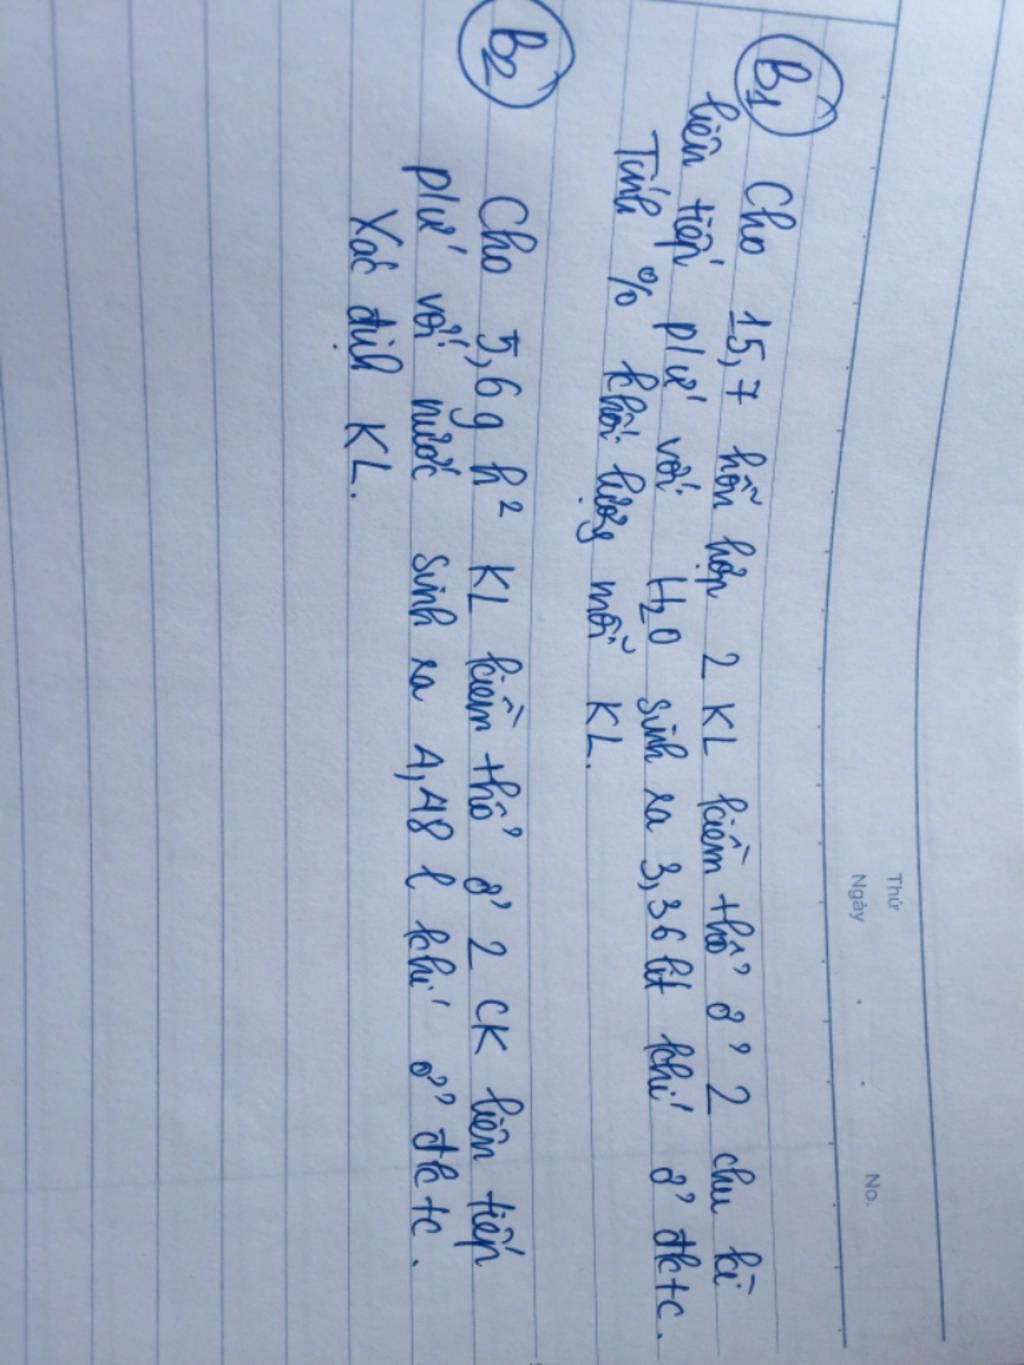 Thứ
Ngày No.
B1 Cho 15,7 hỗn hợp 2 KL kiềm thổ ở 2 chu kì
liên tiếp pứ với H2O sinh ra 3,36 lít khí ở đktc.
Tính % khối lượng mỗi KL.
B2 Cho 5,6g h² KL kiềm thổ ở 2 CK liên tiếp
pứ với nước sinh ra 4,48 l khí ở đktc.
Xác định KL.